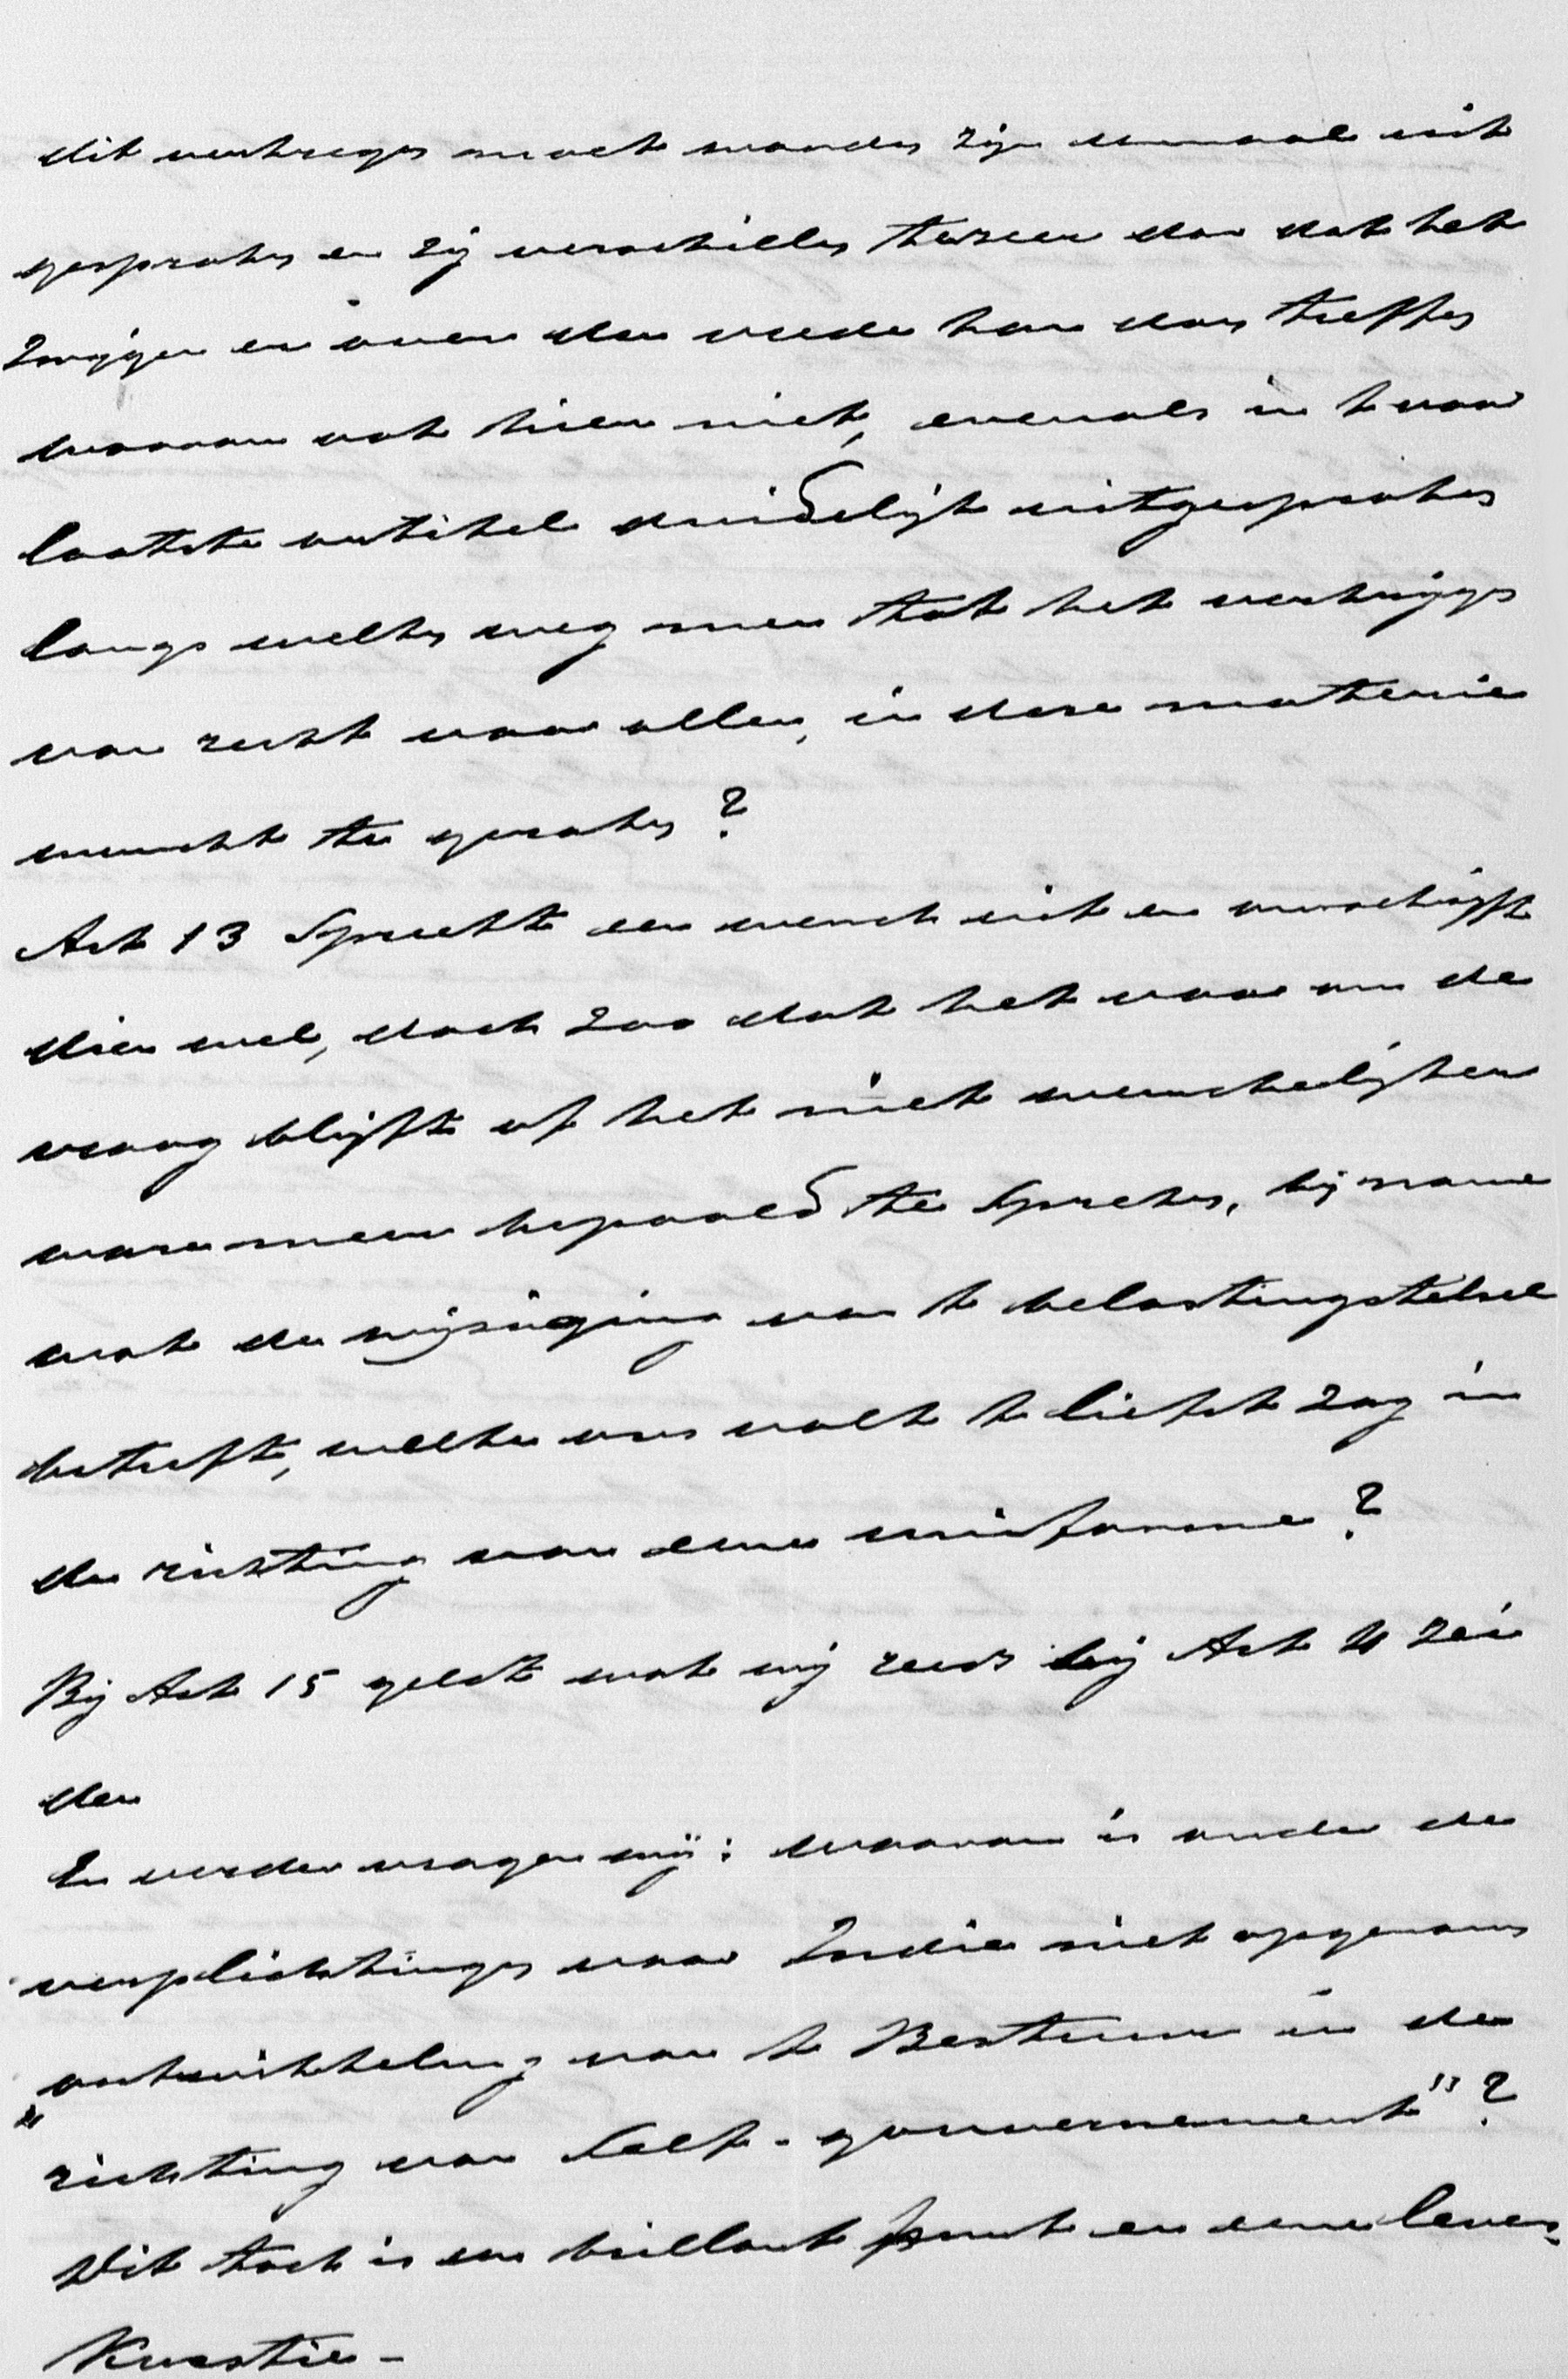 dit verkregen moet worden zijn eenmaal uit
gesproken en zij verschillen terzeer dan dat het
zwijgen er over den vrede kan doen treffen
waarom ook hier niet, evenals in 't voor
laatste artikel duidelijk uitgesproken
langs welken weg men tot het verkrijgen
van recht voor allen, in deze materie
wenscht te geraken?
Art 13 Spreekt een wensch uit en omschrijft
dien wel, doch zoo dat het voor ons de
vraag blijft of het niet wenschelijker
ware meer bepaald te Spreken, bij name
wat de wijziging van 't belastingstelsel
betreft, welke ons volk 't liefst zag in
de richting van eene uniforme?
Bij Art 15 geldt wat wij reeds bij Art 4 zei
den
En verder vragen wij: waarom is onder de
verplichtingen voor Indie niet opgenomen
ontwikkeling van 't Bestuur in de
"richting van Self-gouvernement"?
Dit toch is een brillant punt en eene levens
Kwestie-